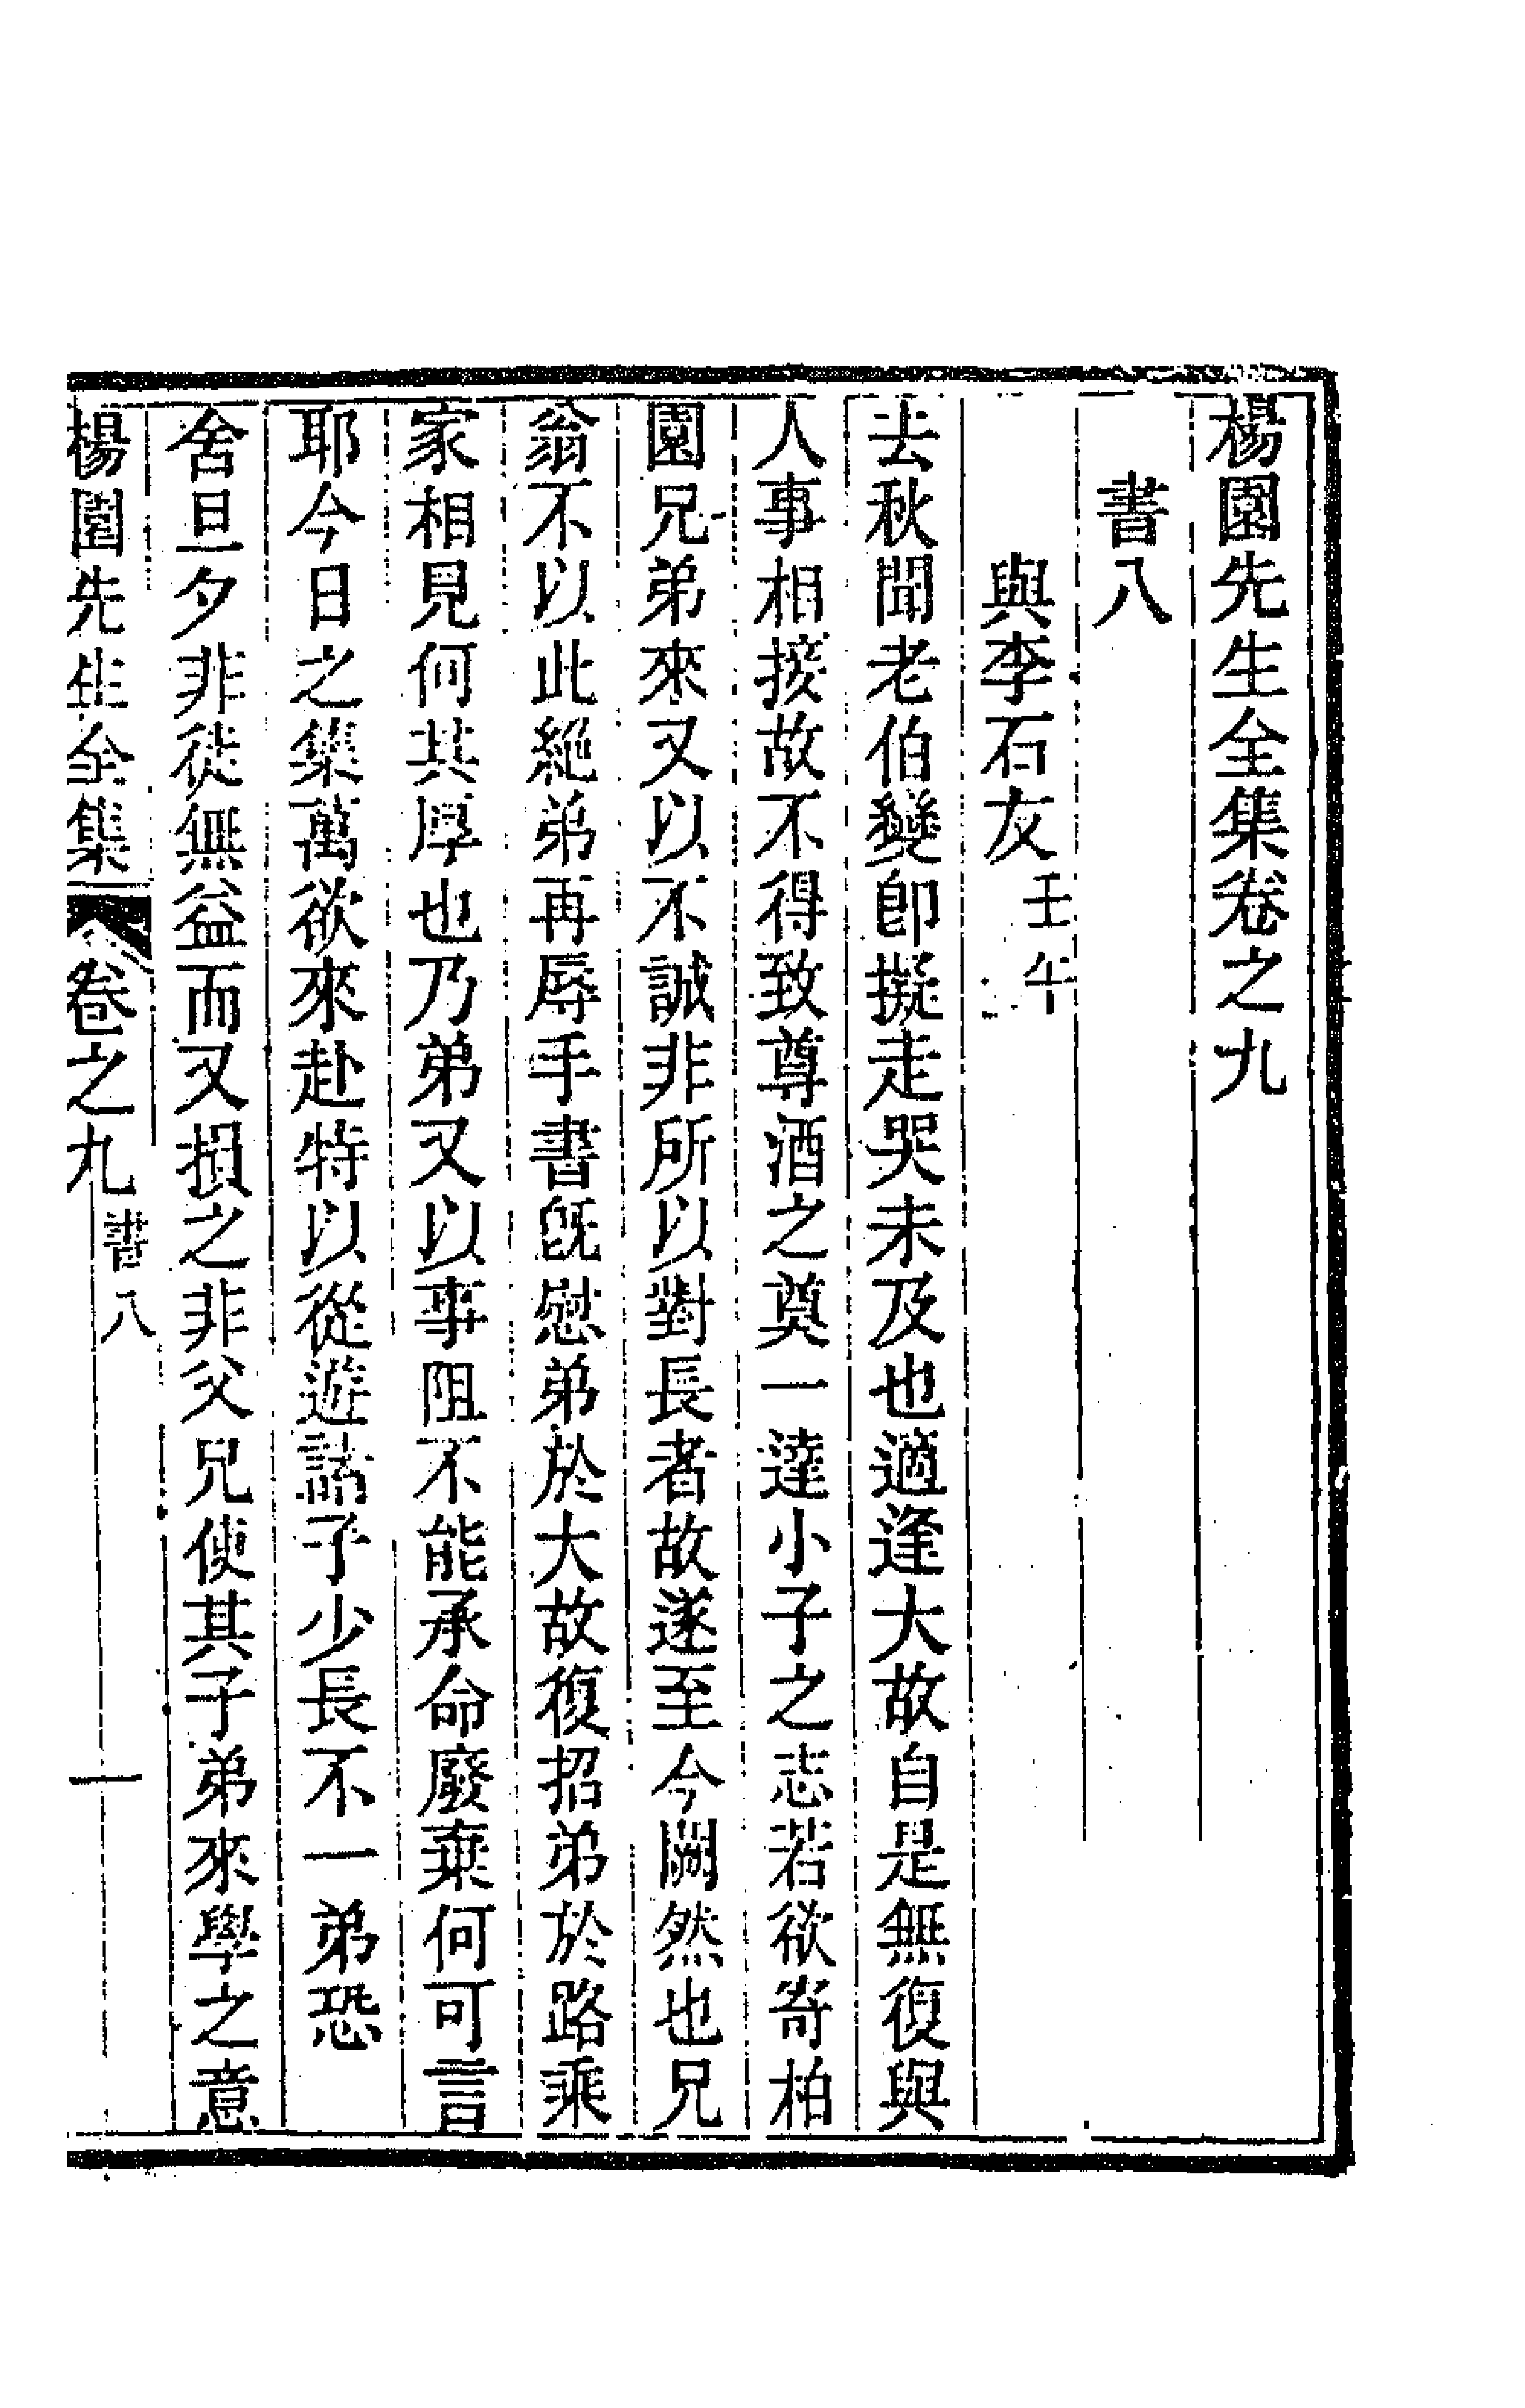 楊園先生全集卷之九
書八
與李石友壬午
去秋聞老伯變卽擬走哭未及也適逢大故自是無復與
人事相接故不得致尊酒之奠一達小子之志若欲寄柏
園兄弟來又以不誠非所以對長者故遂至今闕然也兄
翁不以此絕弟再辱手書旣慰弟於大故復招弟於路乘
家相見何其厚也乃弟又以事阻不能承命廢棄何可言
耶今日之集萬欲來赴特以從遊諸子少長不一弟恐
舍旦夕非徒無益而又損之非父兄使其子弟來學之意
楊園先生全集 卷之九 書八 一